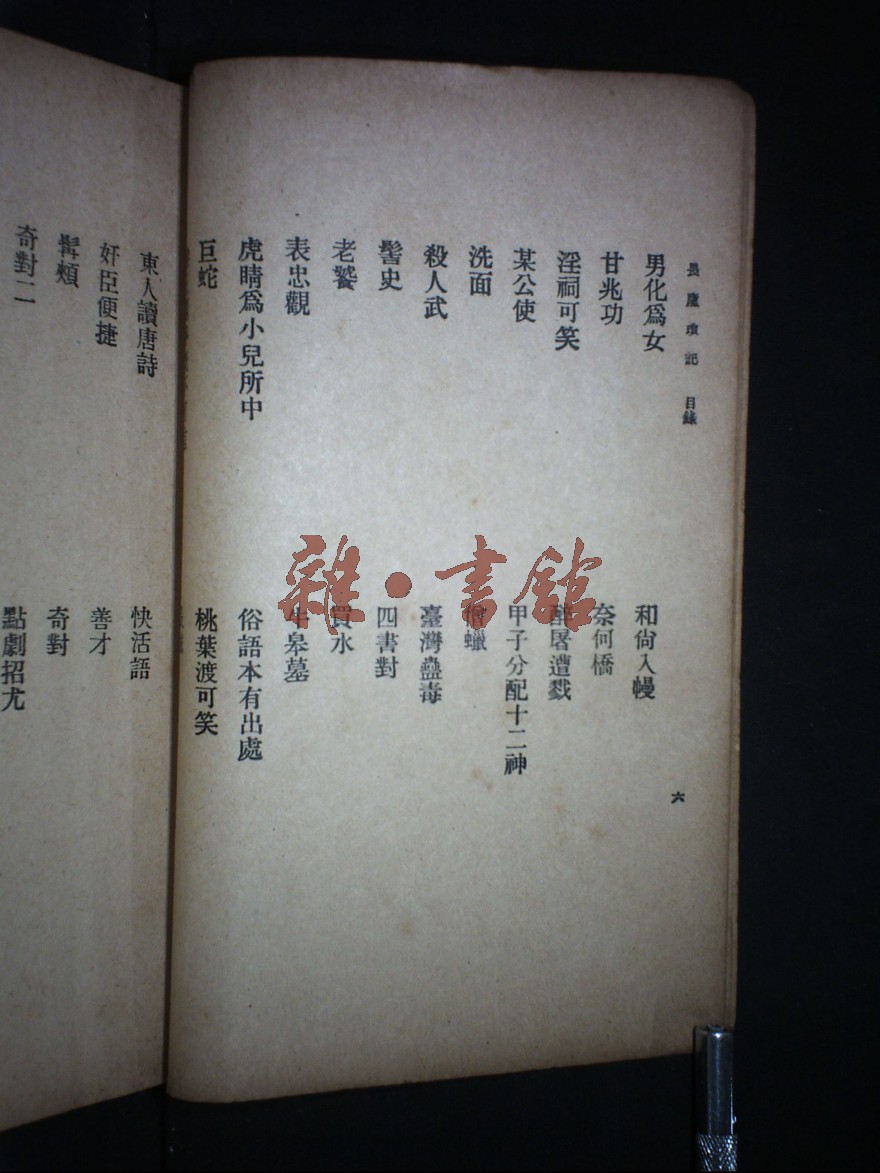 畏廬瑣記 目錄
六
男化爲女 和尙入幔
甘兆功 奈何橋
淫祠可笑 醉屠遭戮
某公使 甲子分配十二神
洗面 僧蠟
殺人武 臺灣蠱毒
髻史 四書對
老饕 買水
表忠觀 牛皋墓
虎睛爲小兒所中 俗語本有出處
巨蛇 桃葉渡可笑
東人讀唐詩 快活語
奸臣便捷 善才
奇對
奇對二 點劇招尤
雜·書館